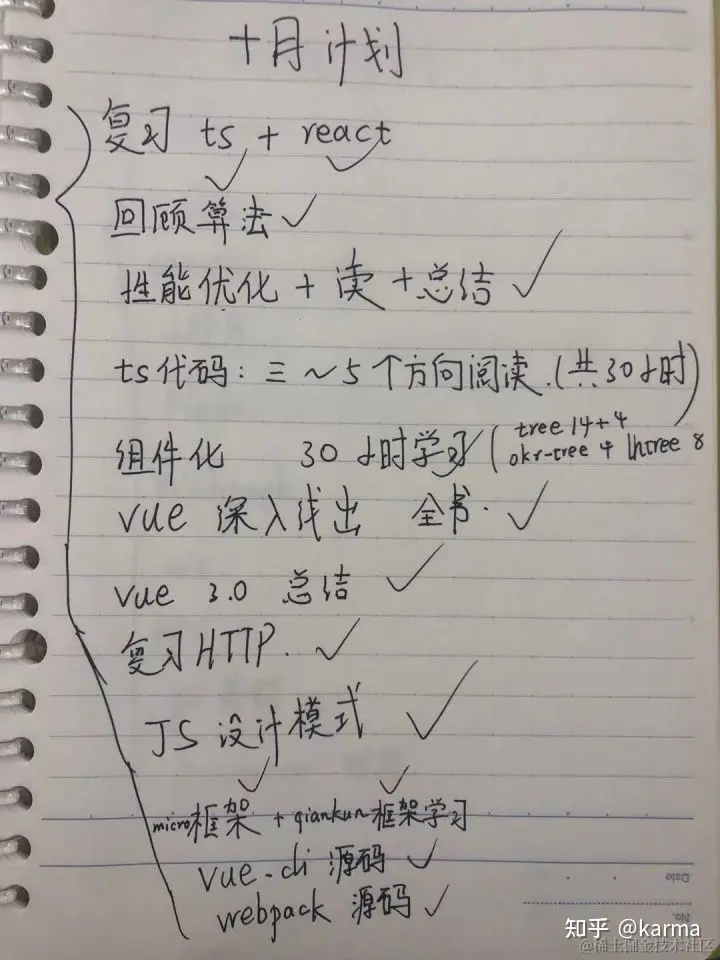 十月计划
复习 ts + react
回顾算法
性能优化 + 读 + 总结
ts代码: 三~5个方向阅读.(共30小时)
组件化 30小时学习 (tree 14+4
okr-tree 4 lhtree 8
vue 深入浅出 全书.
vue 3.0 总结
复习HTTP.
JS 设计模式
micro框架 + qiankun框架学习
vue-cli 源码
webpack 源码
Date
No.
知乎 @karma
@稀土掘金技术社区